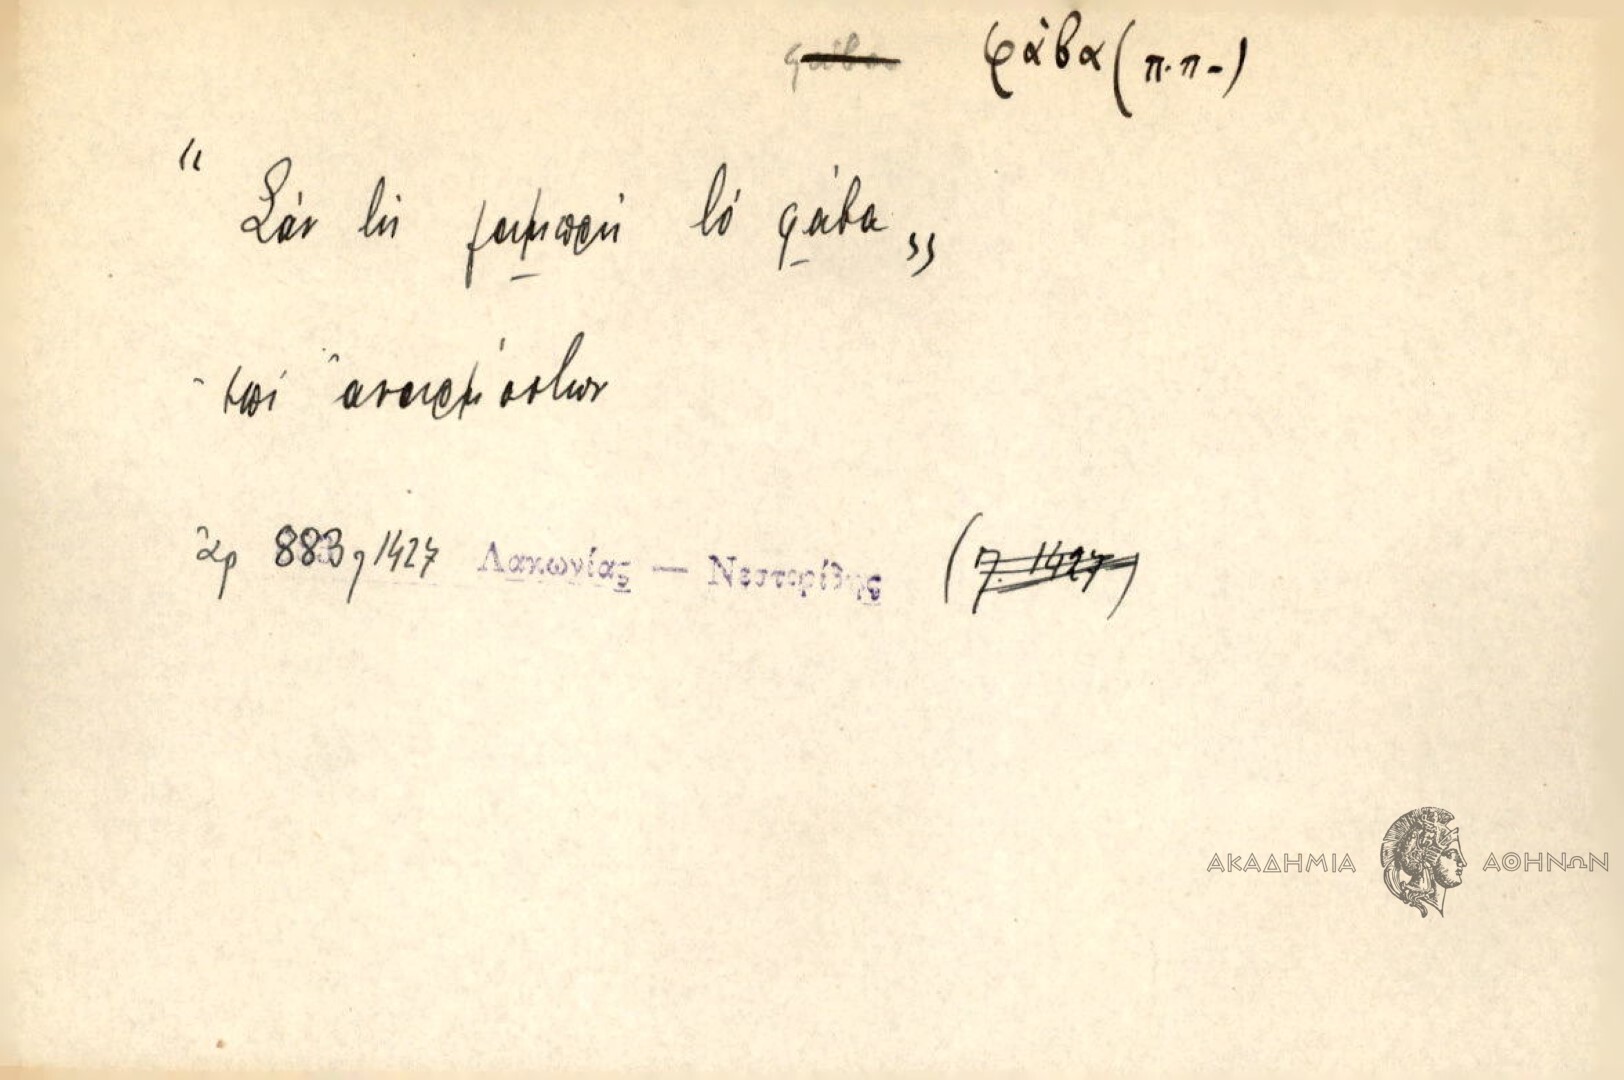 φάβα φάβα (π.π-)
“ Σάν τή λαμπρή τό φάβα „
- ἐπί ἀναρμόστων
ἀρ 883, 1427 Λακωνίας — Νεστορίδης (η. 1427)
ΑΚΑΔΗΜΙΑ ΑΘΗΝΩΝ